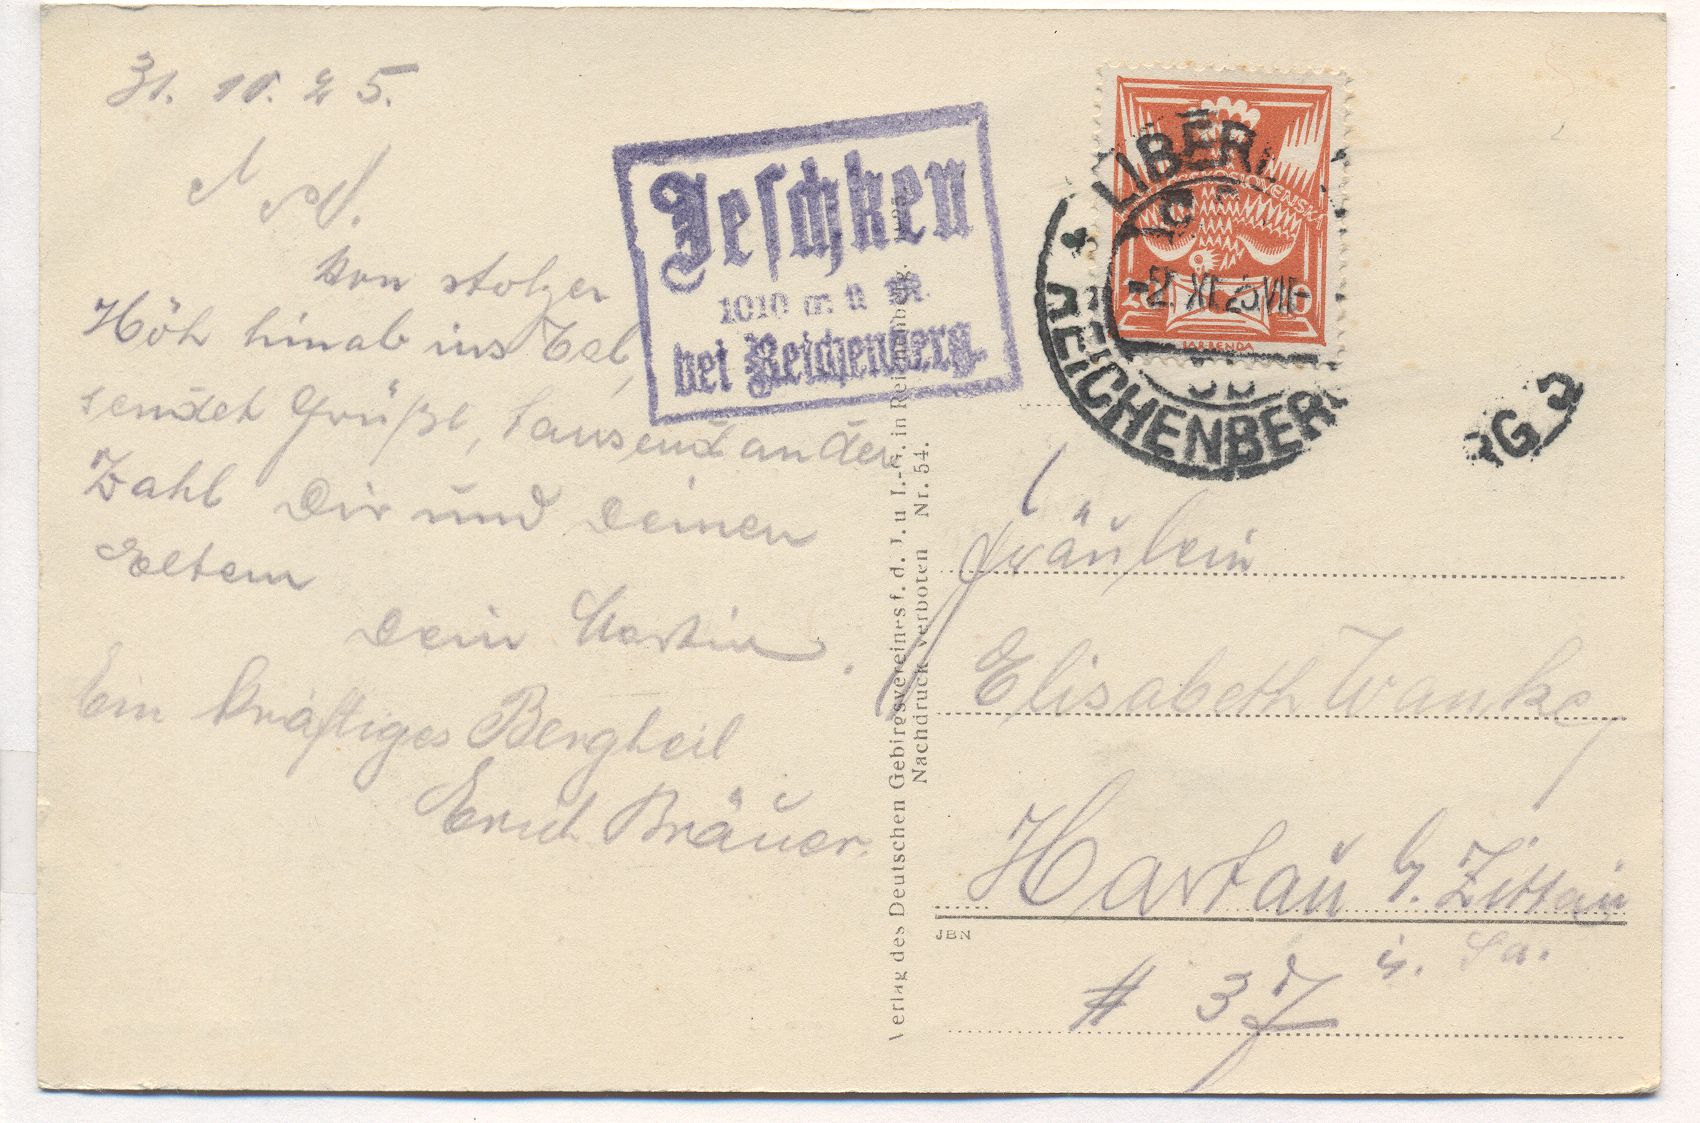 31. 10. 25.
Von stolzer
Höh hinab ins Tal,
sendet Grüße, tausend an der
Zahl Dir und Deinen
Eltern
Dein Martin.
Ein kräftiges Bergheil
Erich Bräuer.
Jeschken
1010 m. ü. M.
bei Reichenberg.
Verlag des Deutschen Gebirgsvereines f. d. J. u I.-G. in Reichenberg.
Nachdruck verboten Nr. 54.
LIBERE
REICHENBERG
2. XI. 25 VII
ČESKOSLOVENSKÁ
20
RG 2
Fräulein
Elisabeth Wanke
Hartau b. Zittau
JBN
i. Sa.
# 37